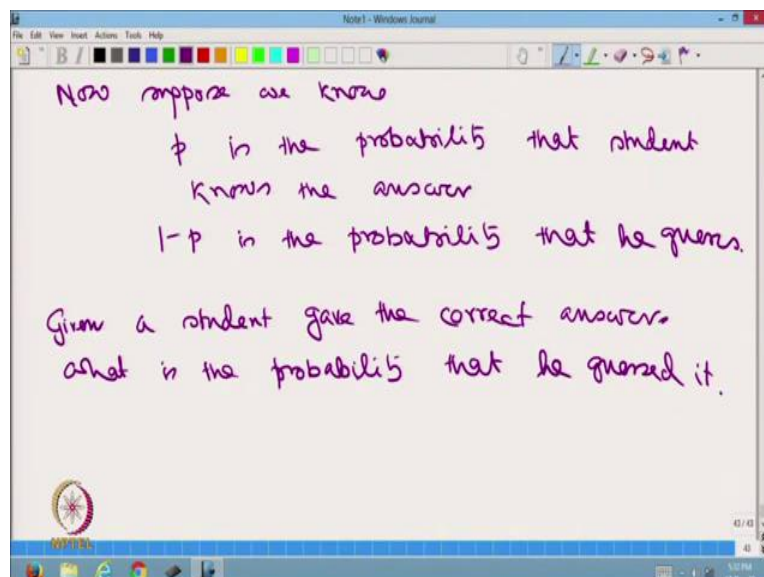 Note1 - Windows Journal
File Edit View Insert Actions Tools Help
Now suppose we know
p is the probability that student
knows the answer
1-p is the probability that he guess.
Given a student gave the correct answer.
what is the probability that he guessed it.
NPTEL
43/43
43
5:12 PM